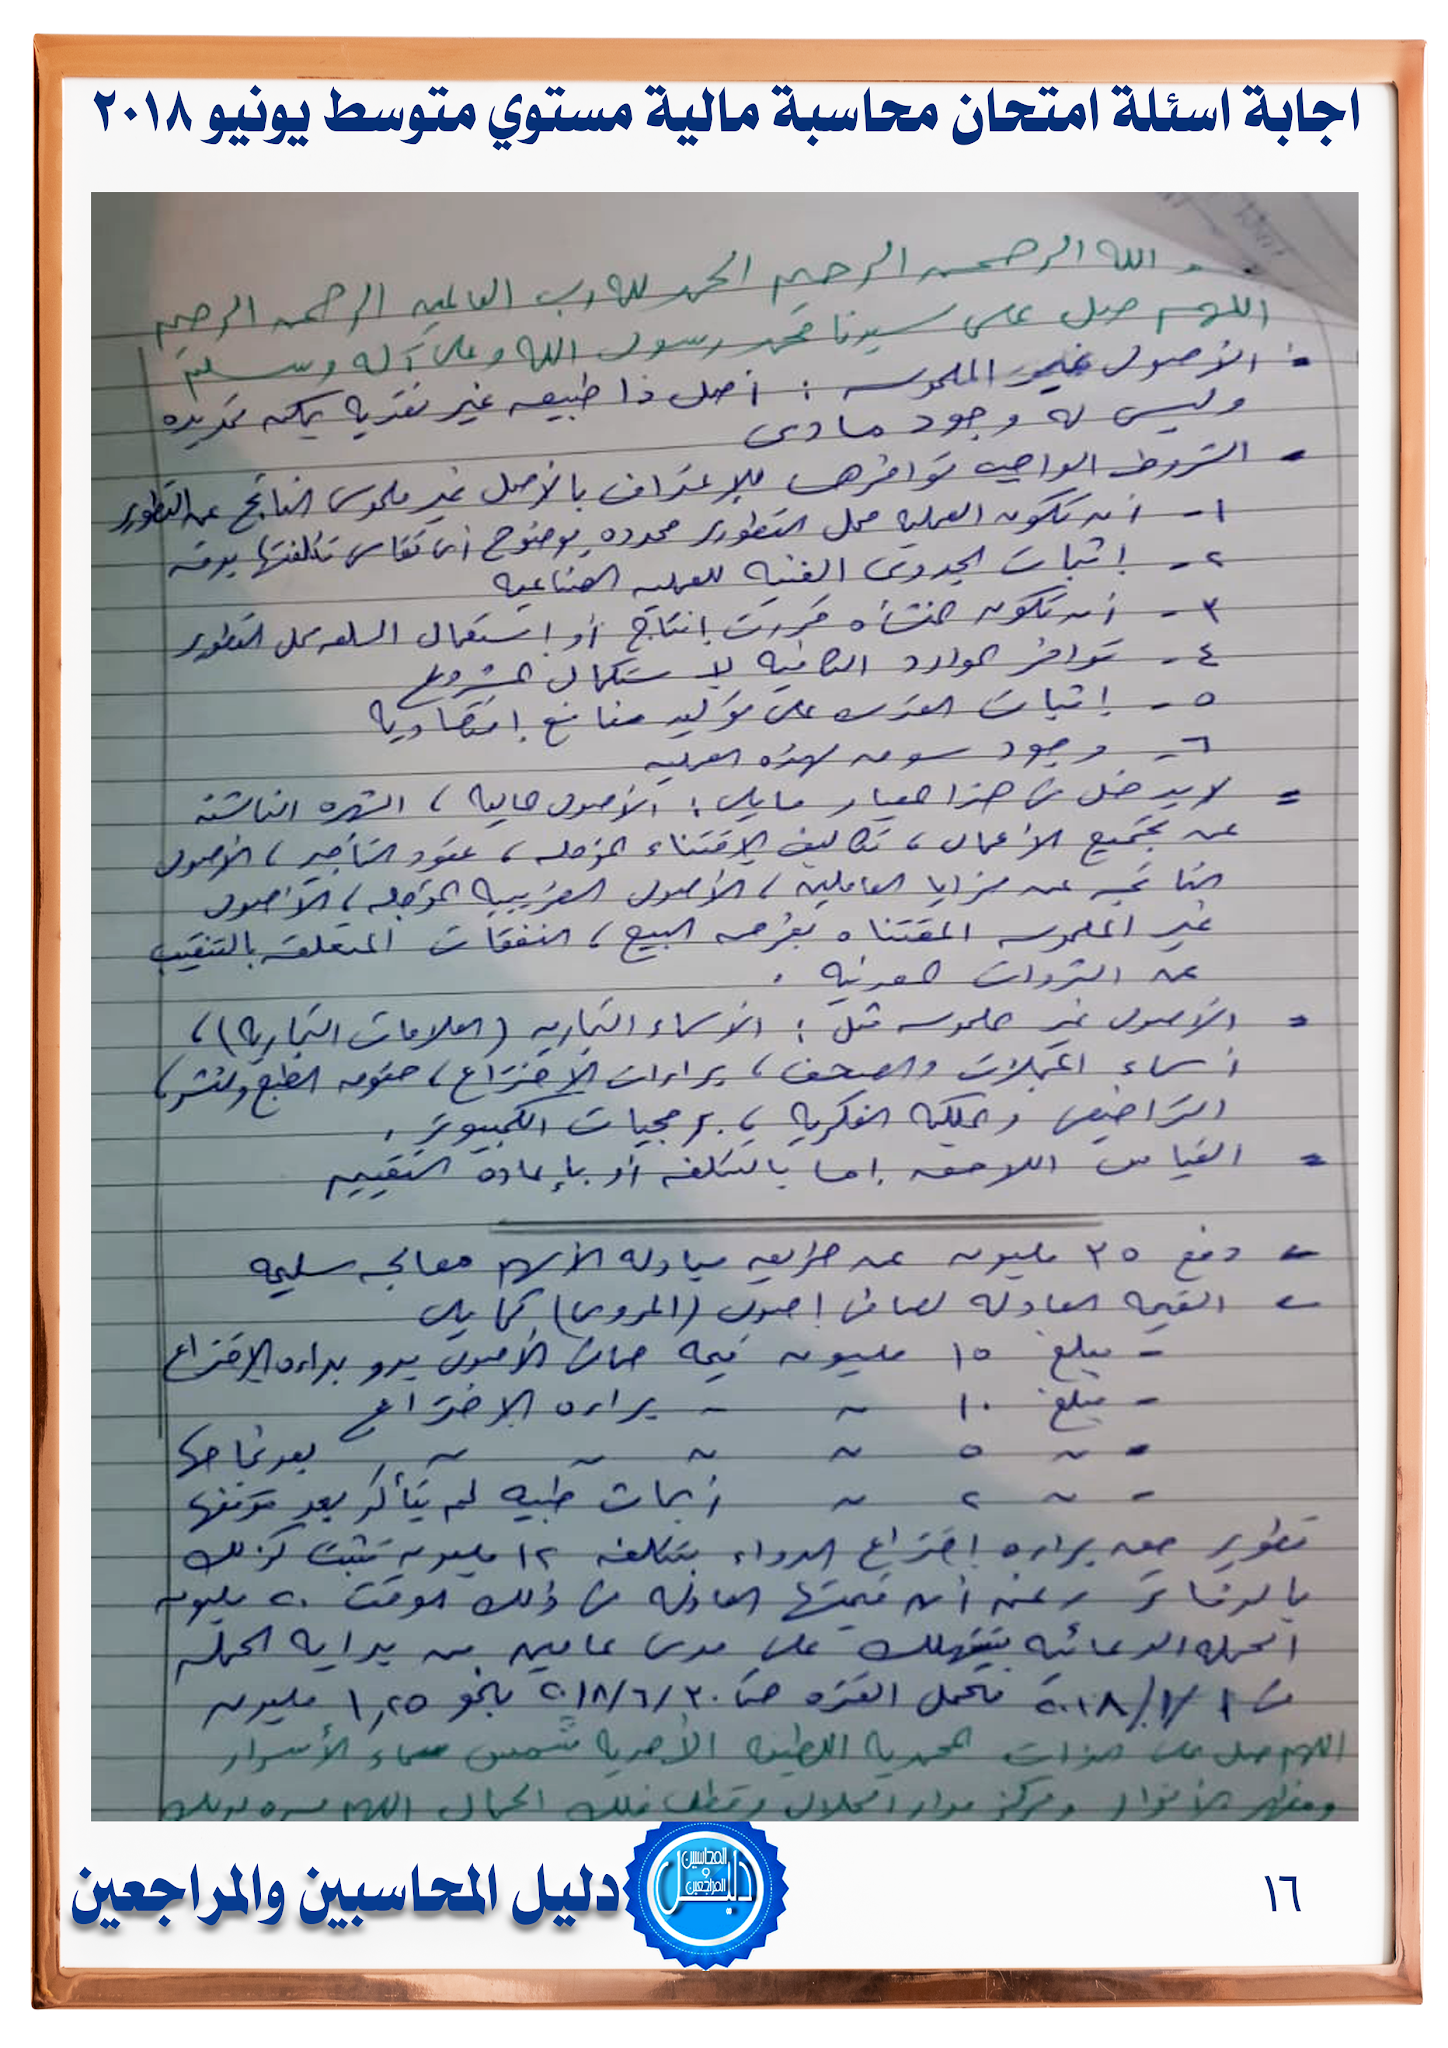 اجابة اسئلة امتحان محاسبة مالية مستوي متوسط يونيو ٢٠١٨
الله الرحمن الرحيم الحمد لله رب العالمين الرحمن الرحيم
اللهم صل على سيدنا محمد رسول الله وعلى آله وسلم
الأصول غير الملموسه : أصل ذا طبيعه غير نقديه يمكن تحديده
وليس له وجود مادى
الشروط الواجب توافرها للإعتراف بالأصل غير ملموس الناتج عن التطوير
١- أن تكون العمليه محل التطوير محدده بوضوح أى تقاس تكلفتها بدقه
٢- إثبات الجدوى الفنيه للعمليه الصناعيه
٣- أن تكون المنشأه قررت إنتاج أو إستعمال السلعه محل التطوير
٤- توافر الموارد الكافيه لإستكمال المشروع
٥- إثبات القدره على توليد منافع إقتصاديه
٦- وجود سوق لهذه العمليه
= لايدخل فى هذا المعيار مايلى : الأصول الماليه ، الشهره الناشئه
عن تجميع الأعمال ، تكاليف الإقتناء المؤجله ، عقود التأجير ، الأصول
الناتجه عن مزايا العاملين ، الأصول الضريبيه المؤجله ، الأصول
غير الملموسه المقتناه بغرض البيع ، النفقات المتعلقه بالتنقيب
عن الثروات المعدنيه .
= الأصول غير الملموسه مثل : الأسماء التجاريه (العلامات التجاريه) ،
أسماء المجلات والصحف ، براءات الإختراع ، حقوق الطبع والنشر ،
التراخيص والملكيه الفكريه ، برمجيات الكمبيوتر .
= القياس اللاحق إما بالتكلفه أو بإعادة التقييم
- دفع ٣٥ مليون عن طريق مبادله الأسهم معالجه سليمه
- القيمه العادله لصافى اصول (المروى) كما يلى
- مبلغ ١٥ مليون قيمه صافى الأصول بدو براءه الإختراع
- مبلغ ١٠ ~ ~ براءه الإختراع
- ~ ٥ ~ ~ ~ ~ بعد نجاحها
- ~ ٢ ~ أبحاث طبيه لم يتأكد بعد
تطوير حق براءه إختراع الدواء بتكلفه ١٢ مليون تثبت كذلك
بالدفاتر رغم أن قيمتها العادله فى ذلك الوقت ٢٠ مليون
الحمله الدعائيه تستهلك على مدى عامين من بدايه الحمله
فى ٢٠١٨/١/١ فتحمل الفتره حتى ٢٠١٨/٦/٣٠ بنحو ١,٢٥ مليون
اللهم صل على الذات المحمديه اللطيفه الأحديه شمس سماء الأسرار
ومظهر الأنوار ومركز مدار الجلال وقطب فلك الجمال اللهم
دليل المحاسبين والمراجعين
دليل المحاسبين و المراجعين
١٦